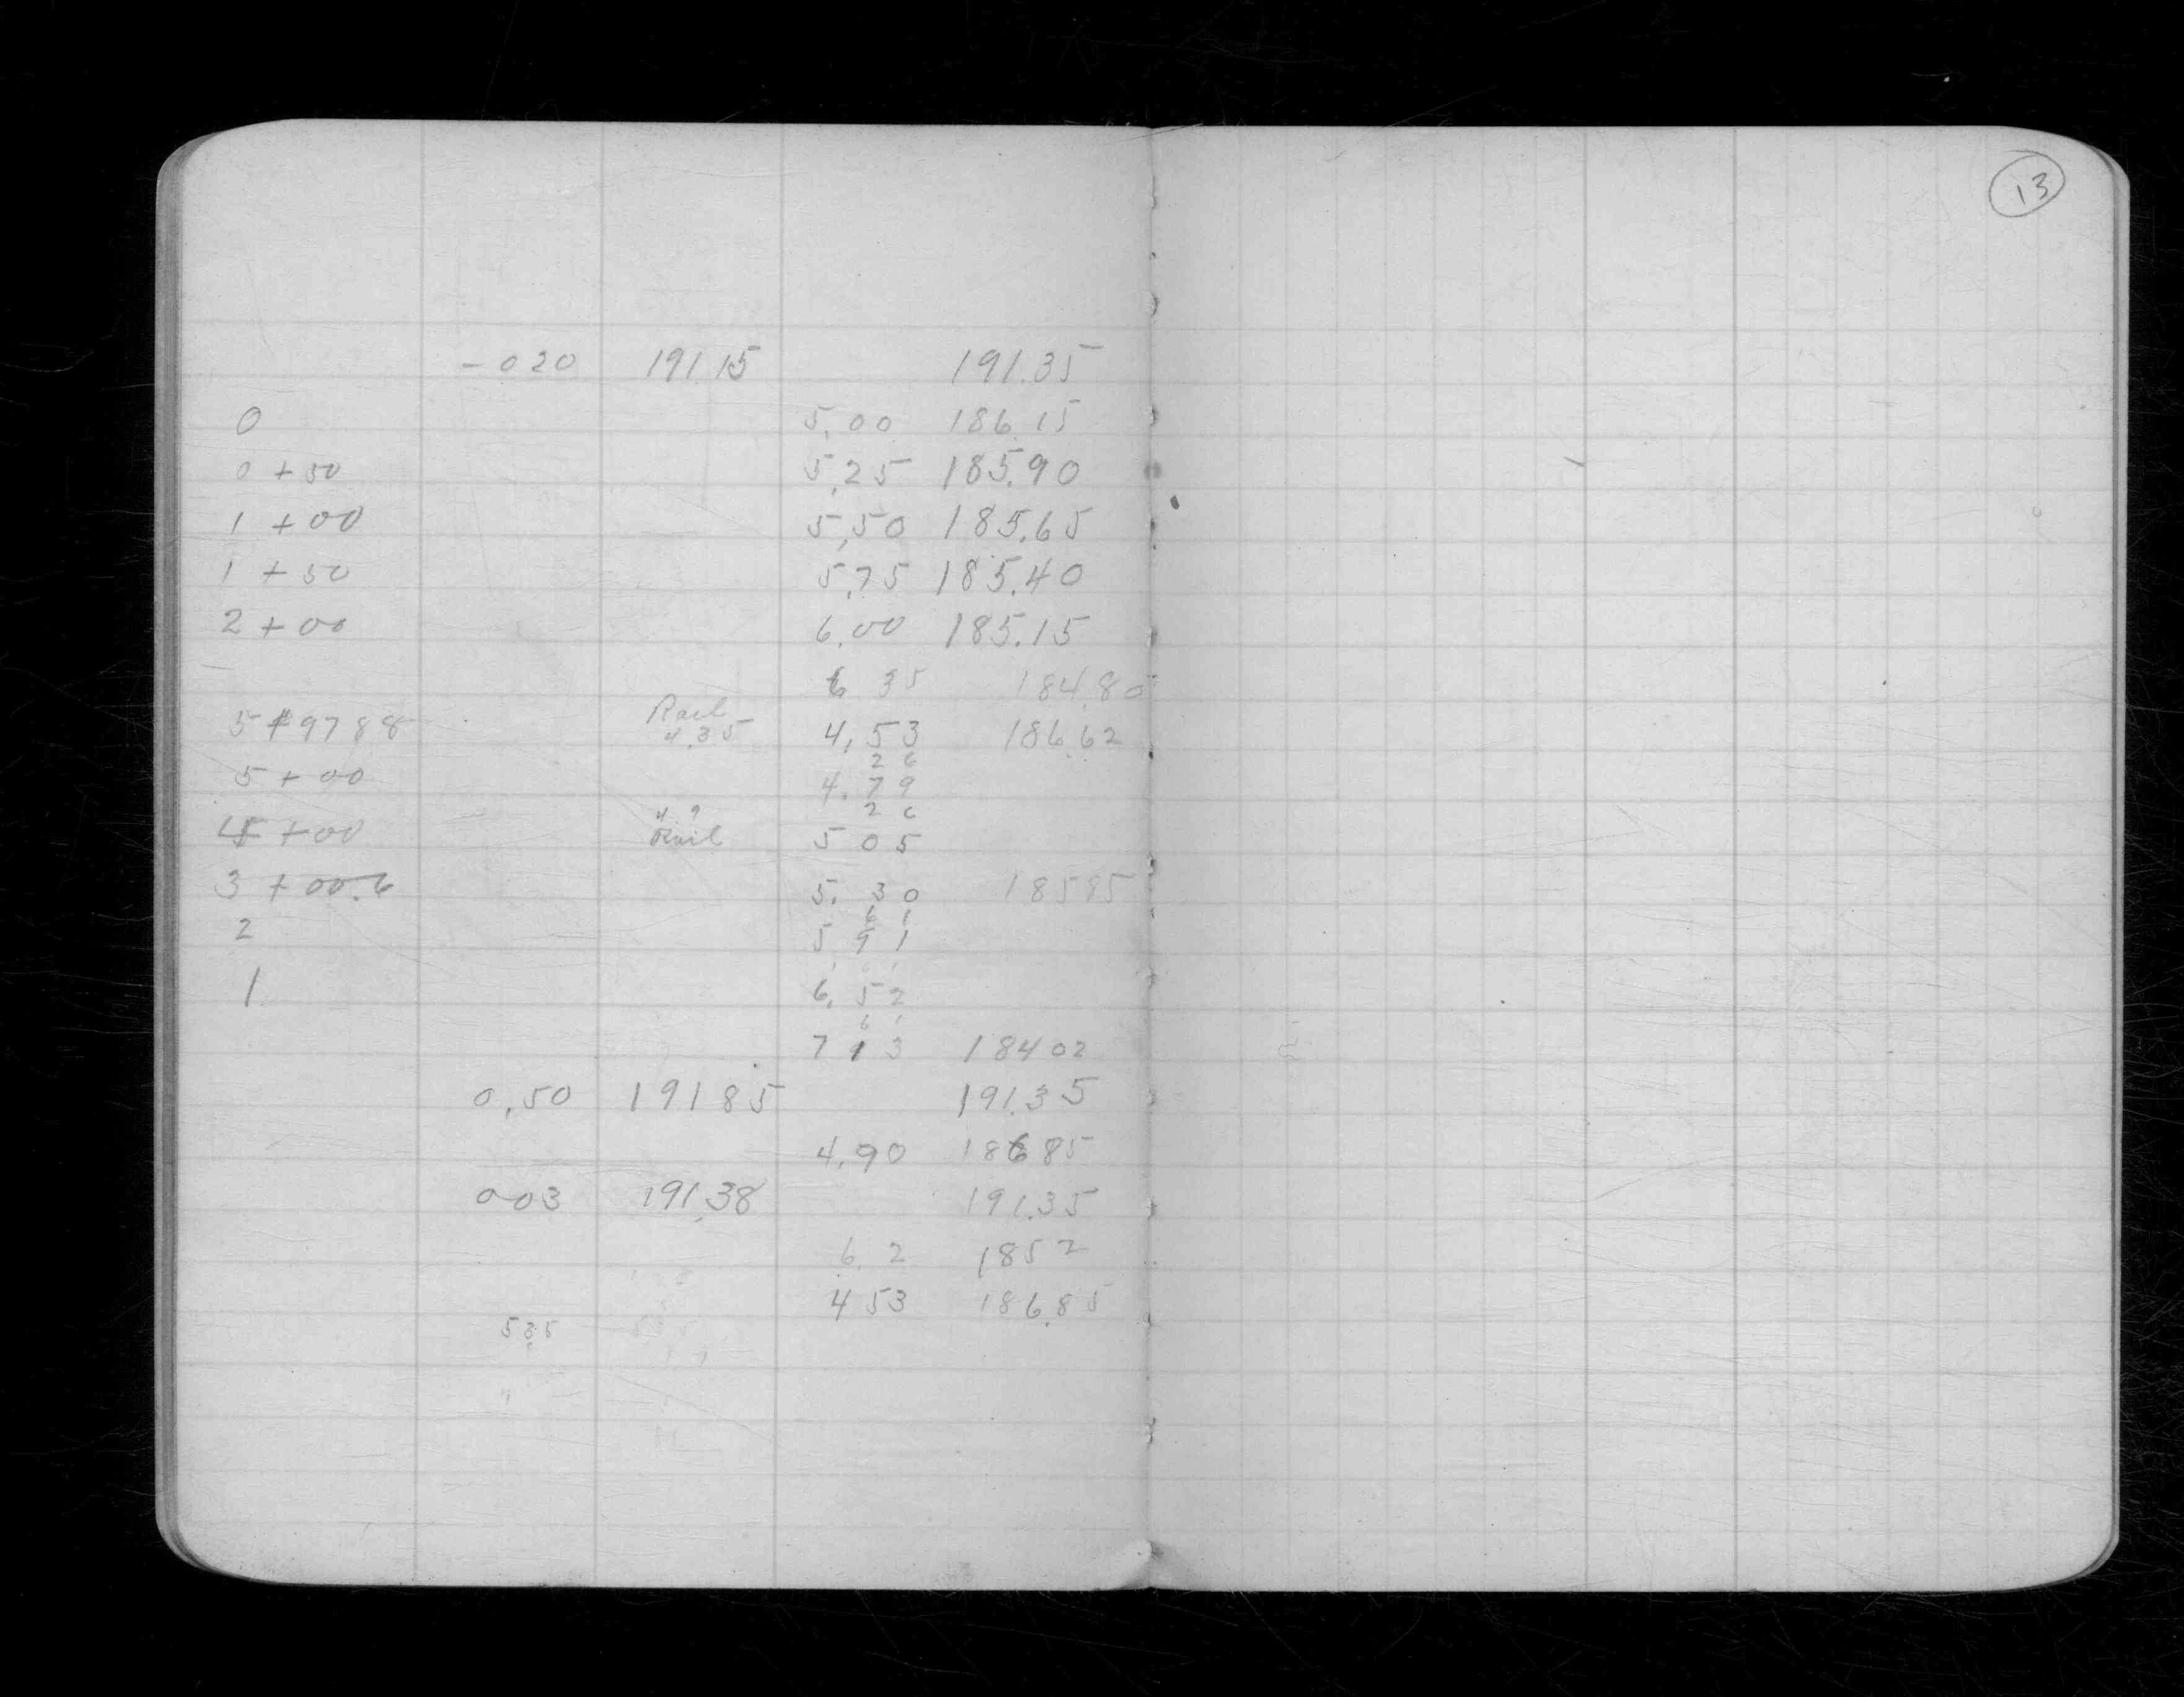 13
-020 191 15 191.35
0 5.00 186.15
0 + 50 5.25 185.90
1 + 00 5.50 185.65
1 + 50 5.75 185.40
2 + 00 6.00 185.15
6 35 184.80
Rail
5+9788 4.35 4.53 186.62
26
5 + 00 4.79
4 9 26
4 + 00 Rail 505
3 + 00.6 5.30 18585
61
2 5 91
1 6.52
6 1
7 13 18402
0.50 19185 191.35
4.90 18685
003 191.38 191.35
6.2 1852
4 53 186.85
535